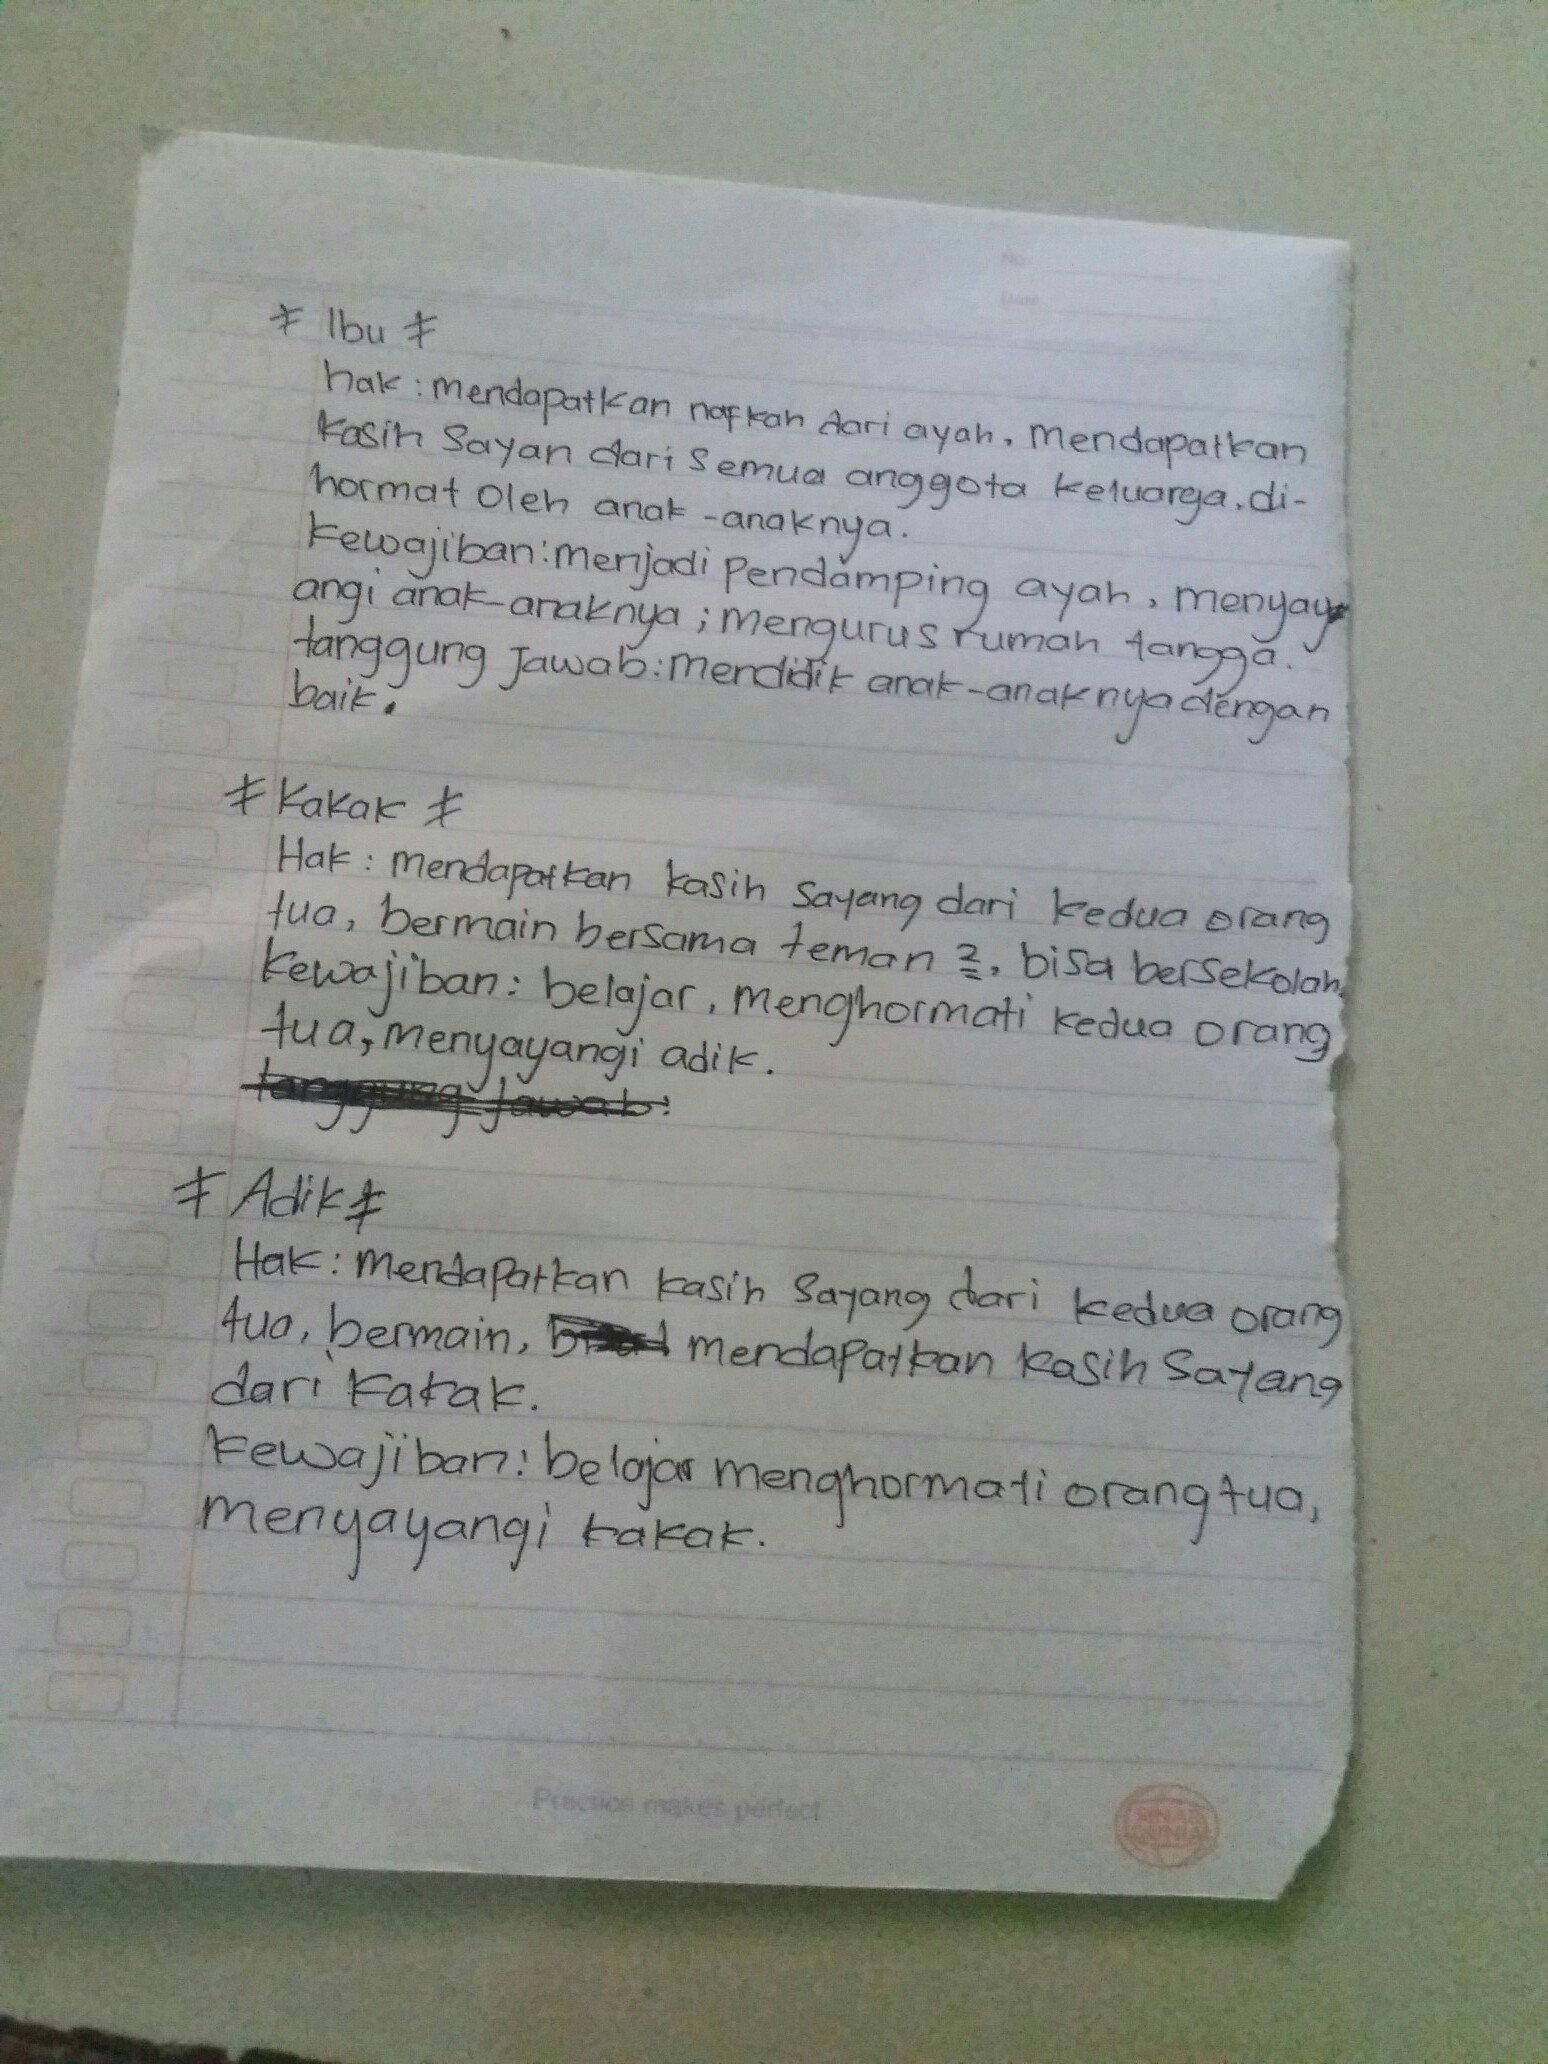 No.
Date
* Ibu *
hak : mendapatkan nafkah dari ayah, mendapatkan
kasih sayan dari semua anggota keluarga, di-
hormat oleh anak-anaknya.
kewajiban : menjadi pendamping ayah, menyay
angi anak-anaknya ; mengurus rumah tangga.
tanggung jawab : mendidik anak-anaknya dengan
baik.
* Kakak *
Hak : mendapatkan kasih sayang dari kedua orang
tua, bermain bersama teman 2, bisa bersekolah.
kewajiban : belajar, menghormati kedua orang
tua, menyayangi adik.
tanggung jawab :
* Adik *
Hak : mendapatkan kasih sayang dari kedua orang
tua, bermain, mendapatkan kasih sayang
dari kakak.
kewajiban : belajar menghormati orang tua,
menyayangi kakak.
Practice makes perfect
SINAR DUNIA